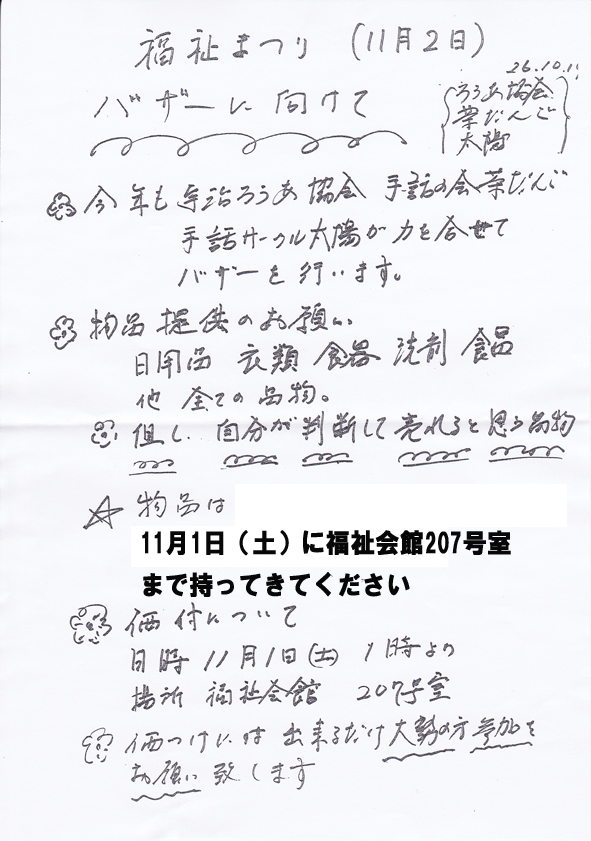 福祉まつり (11月2日)
バザーに向けて
26.10.11
ろうあ協会
茶だんご
太陽
今年も宇治ろうあ協会 手話の会茶だんご
手話サークル太陽が力を合せて
バザーを行います。
物品提供のお願い
日用品 衣類 食器 洗剤 食品
他 全ての品物。
但し 自分が判断して売れると思う品物
☆ 物品は
11月1日(土)に福祉会館207号室
まで持ってきてください
価付について
日時 11月1日(土) 1時より
場所 福祉会館 207号室
価つけには出来るだけ大勢の方参加を
お願い致します